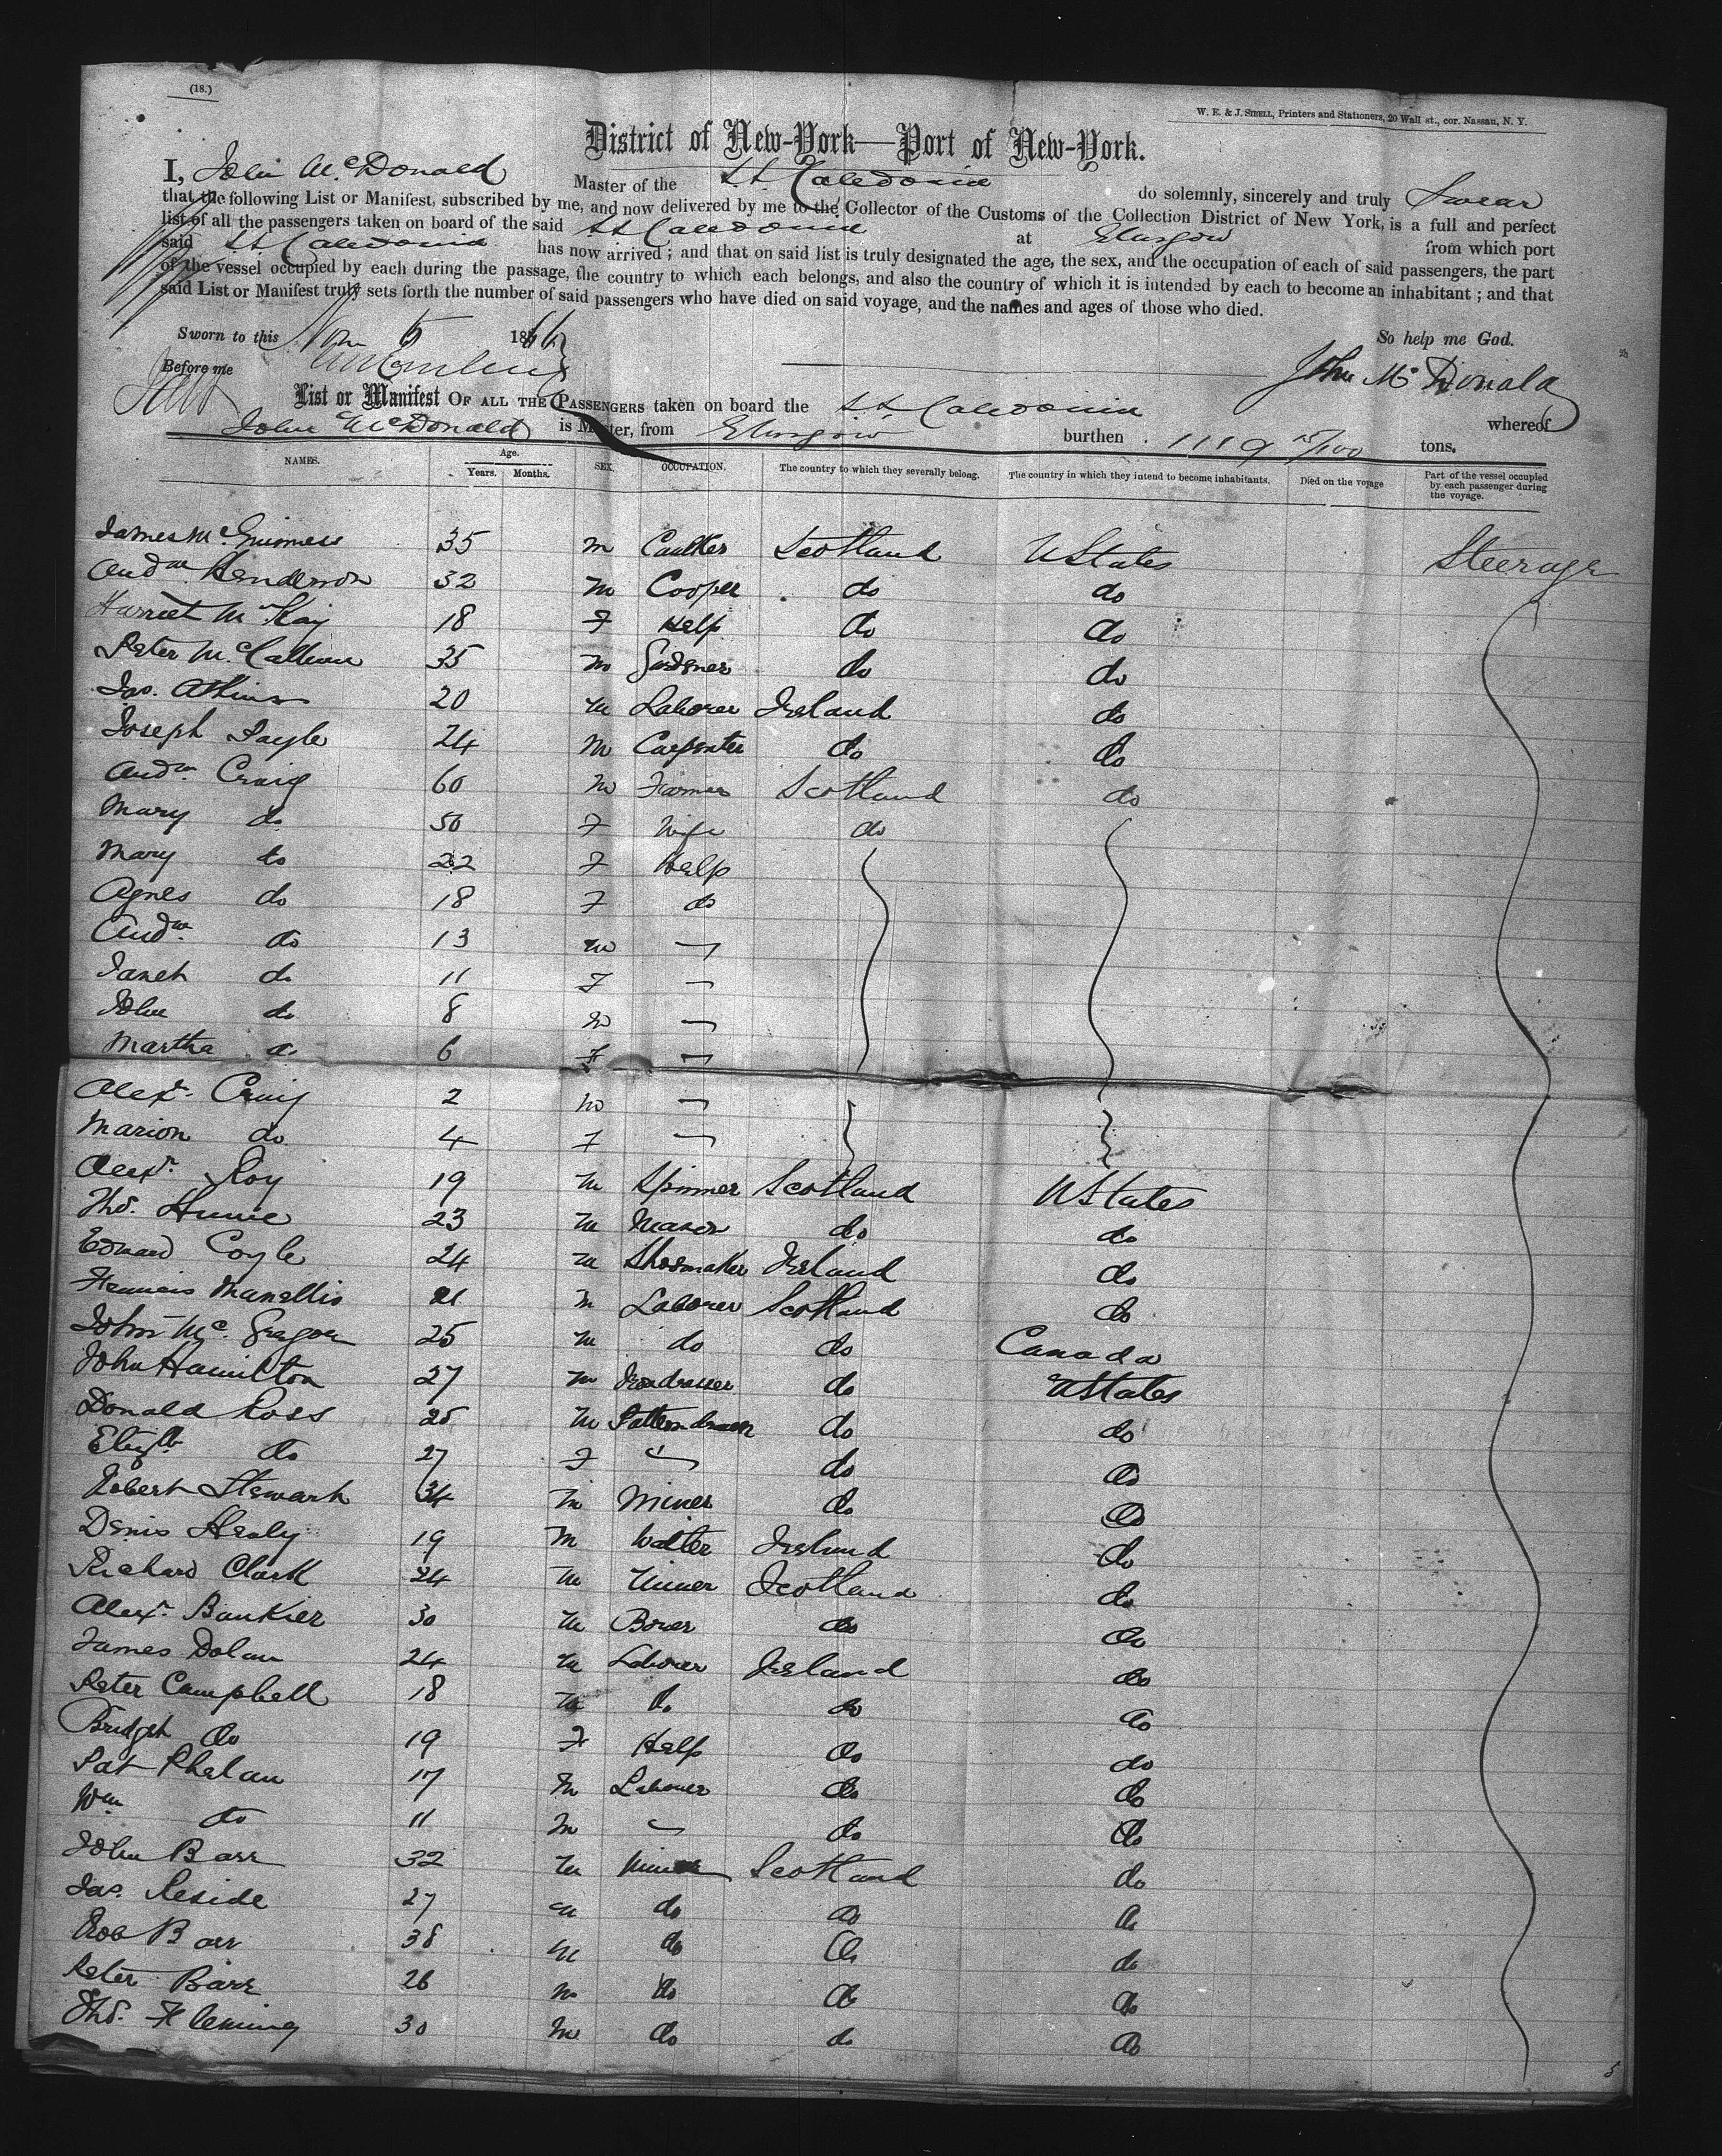 (18.)
W. E. & J. SIBELL, Printers and Stationers, 20 Wall st., cor. Nassau, N. Y.
District of New-York—Port of New-York.
I, John McDonald Master of the SS. Caledonia do solemnly, sincerely and truly Swear
that the following List or Manifest, subscribed by me, and now delivered by me to the Collector of the Customs of the Collection District of New York, is a full and perfect
list of all the passengers taken on board of the said SS Caledonia at Glasgow from which port
said SS Caledonia has now arrived; and that on said list is truly designated the age, the sex, and the occupation of each of said passengers, the part
of the vessel occupied by each during the passage, the country to which each belongs, and also the country of which it is intended by each to become an inhabitant; and that
said List or Manifest truly sets forth the number of said passengers who have died on said voyage, and the names and ages of those who died.
Sworn to this Nov 5 1866 So help me God.
Before me John McDonald
List or Manifest OF ALL THE PASSENGERS taken on board the SS Caledonia whereof
John McDonald is Master, from Glasgow burthen 1119 /100 tons.
NAMES. Age. Years. Months. SEX. OCCUPATION. The country to which they severally belong. The country in which they intend to become inhabitants. Died on the voyage Part of the vessel occupied by each passenger during the voyage.
James McGuiness 35 m Caulker Scotland UStates Steerage
Andw Henderson 32 m Cooper do do
Harriet McKay 18 F Help do do
Peter McCallum 35 m Gardener do do
Jas. Atkins 20 m Laborer Ireland do
Joseph Sayle 24 m Carpenter do do
Andw. Craig 60 m Farmer Scotland do
Mary do 50 F Wife do
Mary do 22 F Help
Agnes do 18 F do
Andw. do 13 m —
Janet do 11 F —
John do 8 m —
Martha do 6 F —
Alexr. Craig 2 m —
Marion do 4 F —
Alexr. Roy 19 m Spinner Scotland UStates
Thos. Hunie 23 m Mason do do
Edward Coyle 24 m Shoemaker Ireland do
Francis Manellis 21 m Laborer Scotland do
John Mc.Gregor 25 m do do Canada
John Hamilton 27 m Irondresser do UStates
Donald Ross 25 m Patterndrawer do do
Elizth do 27 F " do do
Robert Stewart 34 m Miner do do
Denis Healy 19 m Waiter Ireland do
Richard Clark 24 m Miner Scotland do
Alexr. Bankier 30 m Borer do do
James Dolan 24 m Laborer Ireland do
Peter Campbell 18 m do do do
Bridget do 19 F Help do do
Pat Phelan 17 m Laborer do do
Wm do 11 m — do do
John Barr 32 m Miner Scotland do
Jas. Reside 27 m do do do
Rob Barr 38 m do do do
Peter Barr 26 m do do do
Thos. Fleming 30 m do do do